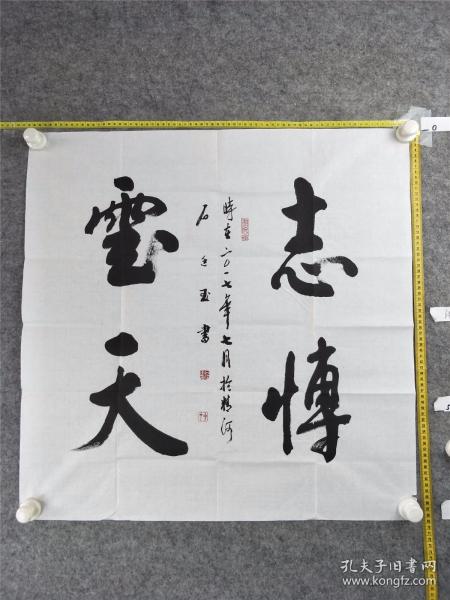 志愽
雲天
時在二〇一七年七月於河
石玉書
0
5
孔夫子旧书网
www.kongfz.com